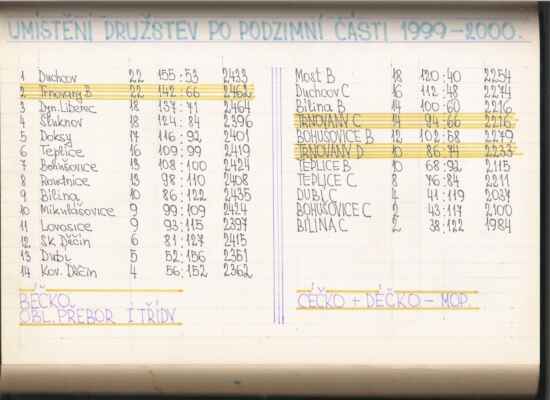 UMÍSTĚNÍ DRUŽSTEV PO PODZIMNÍ ČÁSTI 1999-2000.
1 Duchcov 22 155:53 2433
2 Trnovany B 22 142:66 2462
3 Dyn. Liberec 18 137:71 2464
4 Šluknov 18 124:84 2396
5 Doksy 17 116:92 2401
6 Teplice 16 109:99 2419
7 Bohušovice 13 108:100 2424
8 Roudnice 13 98:110 2408
9 Bílina 10 86:122 2435
10 Mikulášovice 9 99:109 2424
11 Lovosice 9 93:115 2397
12 SK Děčín 6 81:127 2415
13 Dubí 5 52:156 2351
14 Kov. Děčín 4 56:152 2362
BÉČKO.
OBL. PŘEBOR I TŘÍDY
Most B 18 120:40 2254
Duchcov C 16 112:48 2274
Bílina B 14 100:60 2216
TRNOVANY C 14 94:66 2216
BOHUŠOVICE B 12 102:58 2279
TRNOVANY D 10 86:74 2233
TEPLICE B 10 68:92 2115
TEPLICE C 8 76:84 2211
DUBÍ C 4 41:119 2037
BOHUŠOVICE C 2 43:117 2100
BÍLINA C 2 38:122 1984
CÉČKO + DÉČKO - MOP.